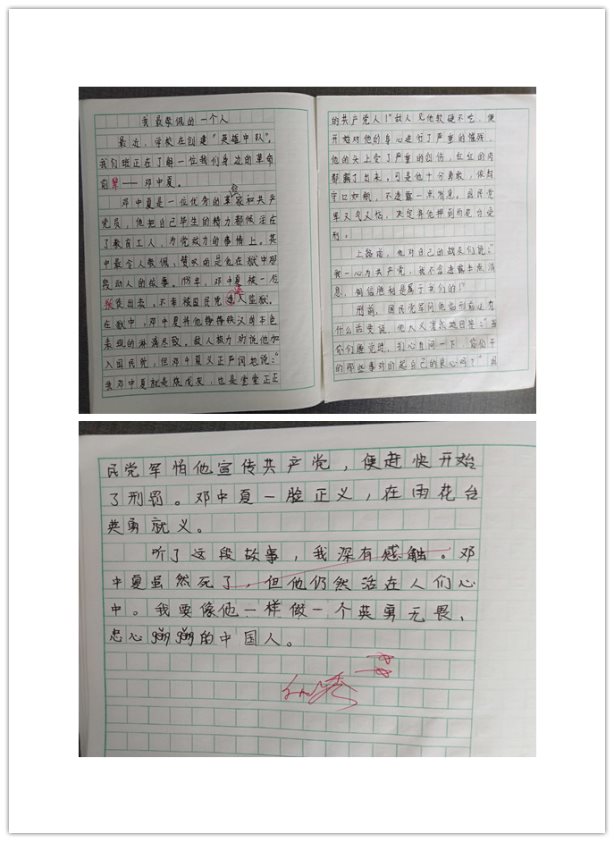 我最敬佩的一个人
最近，学校在创建“英雄中队”，
我们班正在了解一位我们身边的革命
前辈——邓中夏。
邓中夏是一位优秀的革命家和共产
党员，他把自己毕生的精力都倾注在
了教育工人，为党效力的事情上。其
中最令人敬佩，赞叹的是他在狱中那
段动人的故事。1933年，邓中夏被一位
叛徒出卖，不幸被国民党逮入监狱。
在狱中，邓中夏将他铮铮铁汉的本色
表现的淋漓尽致。敌人极力劝说他加
入国民党，但邓中夏义正严词地说：“
我邓中夏就是烧成灰，也是堂堂正正
的共产党人！”敌人见他软硬不吃，便
开始对他的身心进行了严重的摧残。
他的头上受了严重的创伤，红红的肉
都露了出来，可是他十分勇敢，依然
守口如瓶，不透露一点消息。国民党
军又气又恼，决定将他押到雨花台受
刑。
上路前，他对自己的战友们说：“
我一心为共产党，我不会透露半点消
息，相信胜利是属于我们的！”
刑前，国民党军问他临刑前还有
什么话要说，他大义凛然地回答：“当
你们睡觉时，扪心自问一下，你们干
的那些事对得起自己的良心吗？”国
民党军怕他宣传共产党，便赶快开始
了刑罚。邓中夏一脸正义，在雨花台
英勇就义。
听了这段故事，我深有感触。邓
中夏虽然死了，但他仍然活在人们心
中。我要像他一样做一个英勇无畏、
忠心耿耿的中国人。